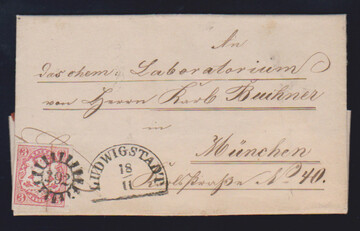 An
das chem. Laboratorium
von Herrn Karl Buchner
in
München
Karlstraße No. 40.
LUDWIGSTADT
18
11
3
3